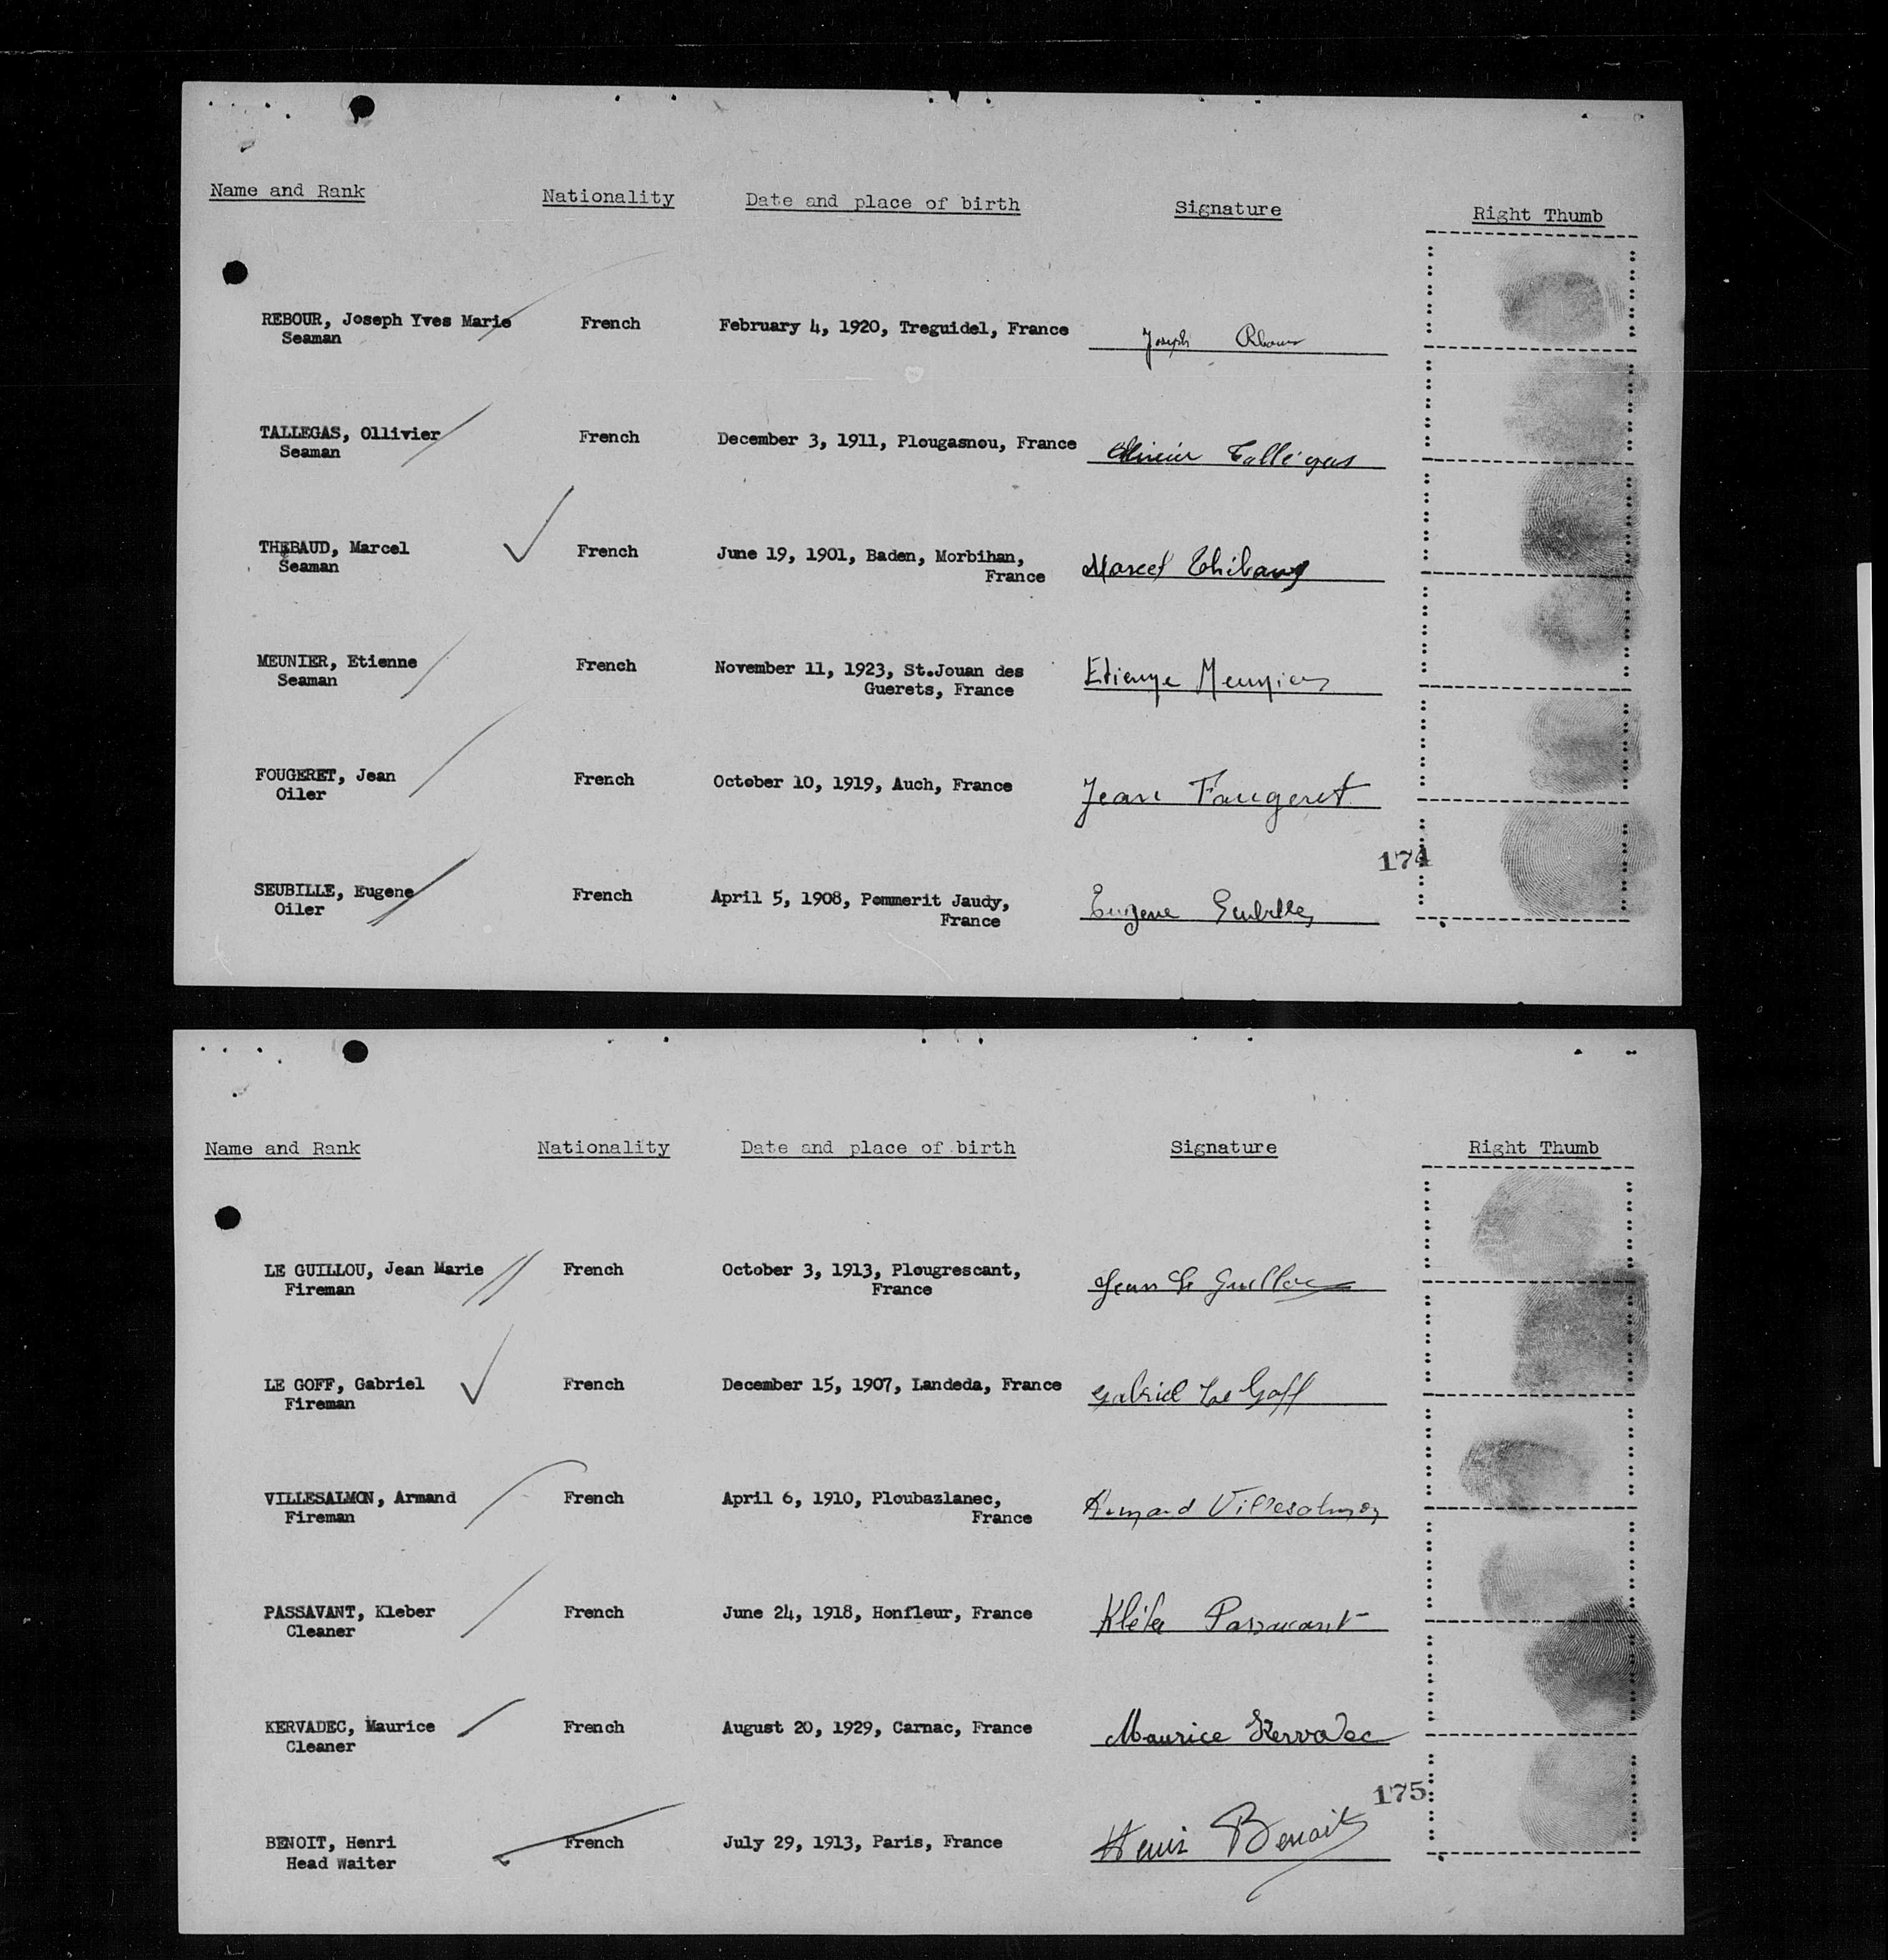 Name and Rank Nationality Date and place of birth Signature Right Thumb
REBOUR, Joseph Yves Marie French February 4, 1920, Treguidel, France Joseph Rebour
Seaman
TALLEGAS, Ollivier French December 3, 1911, Plougasnou, France Ollivier Tallégas
Seaman
THEBAUD, Marcel French June 19, 1901, Baden, Morbihan, Marcel Thébaud
Seaman France
MEUNIER, Etienne French November 11, 1923, St.Jouan des Etienne Meunier
Seaman Guerets, France
FOUGERET, Jean French October 10, 1919, Auch, France Jean Fougeret
Oiler
174
SEUBILLE, Eugene French April 5, 1908, Pommerit Jaudy, Eugene Seubille
Oiler France
Name and Rank Nationality Date and place of birth Signature Right Thumb
LE GUILLOU, Jean Marie French October 3, 1913, Plougrescant, Jean Le Guillou
Fireman France
LE GOFF, Gabriel French December 15, 1907, Landeda, France Gabriel Le Goff
Fireman
VILLESALMON, Armand French April 6, 1910, Ploubazlanec, Armand Villesalmon
Fireman France
PASSAVANT, Kleber French June 24, 1918, Honfleur, France Kléber Passavant
Cleaner
KERVADEC, Maurice French August 20, 1929, Carnac, France Maurice Kervadec
Cleaner
175
BENOIT, Henri French July 29, 1913, Paris, France Henri Benoit
Head Waiter